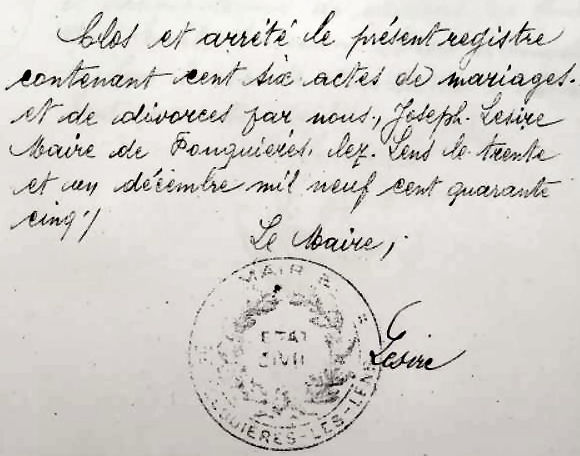 Clos et arrêté le présent registre
contenant cent six actes de mariages
et de divorces par nous, Joseph Lesire
Maire de Fouquières lez Lens le trente
et un décembre mil neuf cent quarante
cinq ./
Le Maire,
MAIRIE
ETAT
CIVIL
FOUQUIERES-LES-LENS
Lesire